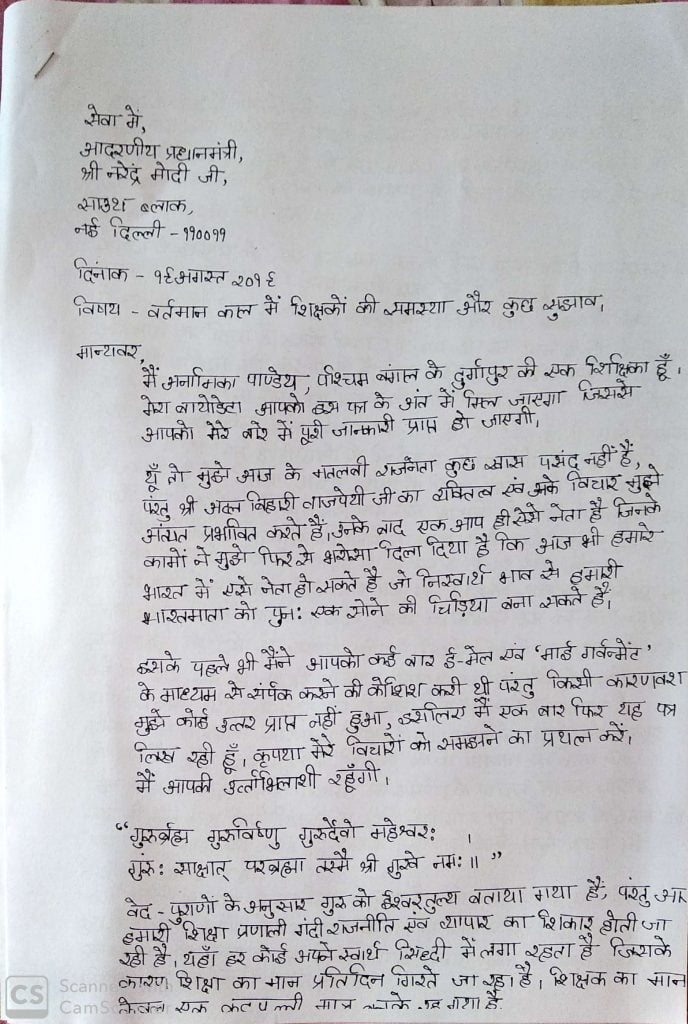 सेवा में,
आदरणीय प्रधानमंत्री,
श्री नरेंद्र मोदी जी,
साउथ ब्लाक,
नई दिल्ली - ११००११
दिनांक - १६ अगस्त २०१६
विषय - वर्तमान काल में शिक्षकों की समस्या और कुछ सुझाव।
मान्यवर,
मैं अनामिका पाण्डेय, पश्चिम बंगाल के दुर्गापुर की एक शिक्षिका हूँ।
मेरा बायोडेटा आपको इस पत्र के अंत में मिल जाएगा जिससे
आपको मेरे बारे में पूरी जानकारी प्राप्त हो जाएगी।
यूँ तो मुझे आज के मतलबी राजनेता कुछ खास पसंद नहीं हैं,
परंतु श्री अटल बिहारी वाजपेयी जी का व्यक्तित्व एवं उनके विचार मुझे
अत्यंत प्रभावित करते हैं। उनके बाद एक आप ही ऐसे नेता हैं जिनके
कामों ने मुझे फिर से भरोसा दिला दिया है कि आज भी हमारे
भारत में ऐसे नेता हो सकते हैं जो निस्वार्थ भाव से हमारी
भारतमाता को पुन: एक सोने की चिड़िया बना सकते हैं।
इसके पहले भी मैंने आपको कई बार ई-मेल एवं 'माई गर्वन्मेंट'
के माध्यम से संपर्क करने की कोशिश करी थी परंतु किसी कारणवश
मुझे कोई उत्तर प्राप्त नहीं हुआ, इसलिए मैं एक बार फिर यह पत्र
लिख रही हूँ। कृपया मेरे विचारों को समझने का प्रयत्न करें।
मैं आपकी उत्तराभिलाशी रहूँगी।
"गुरुर्ब्रह्म गुरुर्विष्णु गुरुर्देवो महेश्वर: ।
गुरु: साक्षात् परब्रह्मा तस्मै श्री गुरुवे नम:॥"
वेद - पुराणों के अनुसार गुरु को ईश्वरतुल्य बताया गया है, परंतु आज
हमारी शिक्षा प्रणाली गंदी राजनीति एवं व्यापार का शिकार होती जा
रही है। यहाँ हर कोई अपने स्वार्थ सिद्दी में लगा रहता है जिसके
कारण शिक्षा का मान प्रतिदिन गिरते जा रहा है। शिक्षक का मान
केवल एक कटपुल्ली मात्र बनके रह गया है।
CS Scanned with
CamScanner